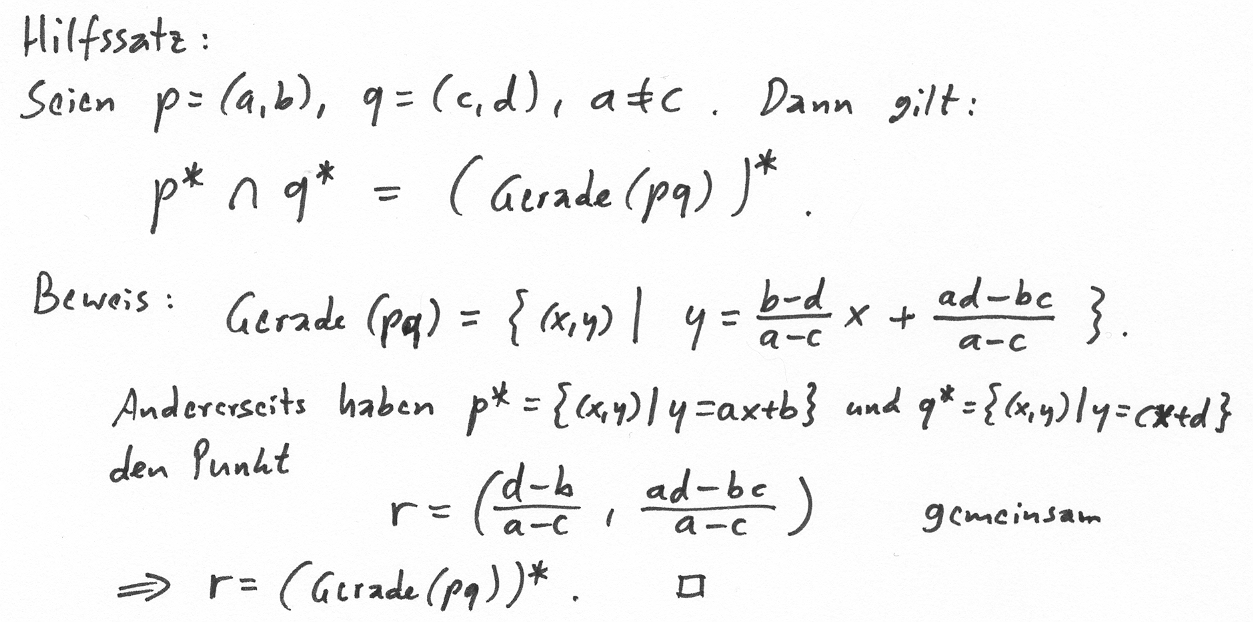 Hilfssatz:
Seien p=(a,b), q=(c,d), a≠c. Dann gilt:
p* ∩ q* = (Gerade(pq))*.
Beweis: Gerade(pq) = {(x,y) | y = \frac{b-d}{a-c} x + \frac{ad-bc}{a-c} }.
Andererseits haben p*={(x,y)|y=ax+b} und q*={(x,y)|y=cx+d}
den Punkt
r = (\frac{d-b}{a-c}, \frac{ad-bc}{a-c}) gemeinsam
⇒ r=(Gerade(pq))*. □